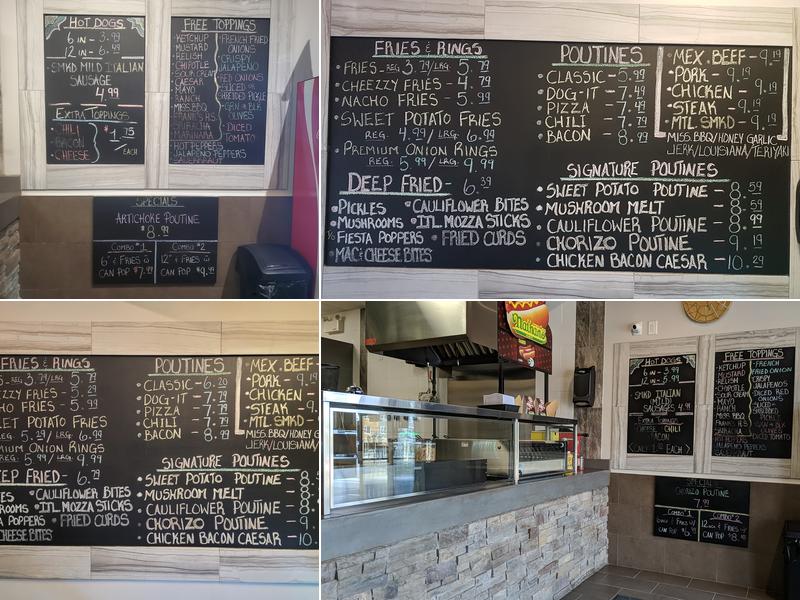 HOT DOGS
6 IN - 3.99
12 IN - 6.49
SMKD MILD ITALIAN
SAUSAGE
4.99
EXTRA TOPPINGS
CHILI
BACON
CHEESE
$1.75
EACH
FREE TOPPINGS
KETCHUP
MUSTARD
RELISH
CHIPOTLE
SOUR CREAM
CAESAR
MAYO
RANCH
MISS BBQ
FRANK'S R.H.
SRIRACHA
MARINARA
HOT PEPPERS
JALAPENO PEPPERS
SAUERKRAUT
FRENCH FRIED
ONIONS
CRISPY
JALAPENO
RED ONIONS
SLICED OR
SHREDDED PICKLE
GRN & BLK
OLIVES
DICED
TOMATO
SPECIALS
ARTICHOKE POUTINE
$8.99
COMBO #1
6" & FRIES &
CAN POP $7.99
COMBO #2
12" & FRIES &
CAN POP $9.99
FRIES & RINGS
FRIES - REG 3.79/LRG. 5.79
CHEEZZY FRIES - 4.79
NACHO FRIES - 5.99
SWEET POTATO FRIES
REG. 4.99/LRG. 6.99
PREMIUM ONION RINGS
REG. 5.99/LRG. 9.99
DEEP FRIED - 6.39
PICKLES
MUSHROOMS
FIESTA POPPERS
MAC & CHEESE BITES
CAULIFLOWER BITES
ITL. MOZZA STICKS
FRIED CURDS
POUTINES
CLASSIC - 5.99
DOG-IT - 7.49
PIZZA - 7.49
CHILI - 7.79
BACON - 8.99
MEX. BEEF - 9.19
PORK - 9.19
CHICKEN - 9.19
STEAK - 9.19
MTL. SMKD - 9.19
MISS. BBQ/HONEY GARLIC
JERK/LOUISIANA/TERIYAKI
SIGNATURE POUTINES
SWEET POTATO POUTINE - 8.59
MUSHROOM MELT - 8.59
CAULIFLOWER POUTINE - 8.99
CHORIZO POUTINE - 9.19
CHICKEN BACON CAESAR - 10.29
FRIES & RINGS
3.79/LRG. 5.79
ZZY FRIES - 4.79
HO FRIES - 5.99
EET POTATO FRIES
REG. 5.29/LRG. 6.99
MIUM ONION RINGS
REG. 5.99/LRG. 9.99
EP FRIED - 6.79
CAULIFLOWER BITES
ROOMS
ITL. MOZZA STICKS
POPPERS
FRIED CURDS
CHEESE BITES
POUTINES
CLASSIC - 6.20
DOG-IT - 7.79
PIZZA - 7.79
CHILI - 7.79
BACON - 8.99
MEX. BEEF
PORK - 9.19
CHICKEN -
STEAK - 9
MTL. SMKD -
MISS. BBQ/HONEY G
JERK/LOUISIANA
SIGNATURE POUTINES
SWEET POTATO POUTINE - 8
MUSHROOM MELT - 8
CAULIFLOWER POUTINE - 8
CHORIZO POUTINE - 9
CHICKEN BACON CAESAR - 10
Nathan's
HOT DOGS
6 IN - 3.99
12 IN - 5.99
SMKD ITALIAN
SAUSAGES 4.99
EXTRA TOPPINGS
CHEESE CHILI
BACON
EACH
FREE TOPPINGS
KETCHUP
MUSTARD
RELISH
CHIPOTLE
SOUR CREAM
CAESAR
MAYO
RANCH
FRENCH
FRIED ONIONS
CRISPY
JALAPENOS
DICED RED
ONIONS
DICED TOMATO
SPECIAL
CHORIZO POUTINE
7.99
COMBO #1
COMBO #2